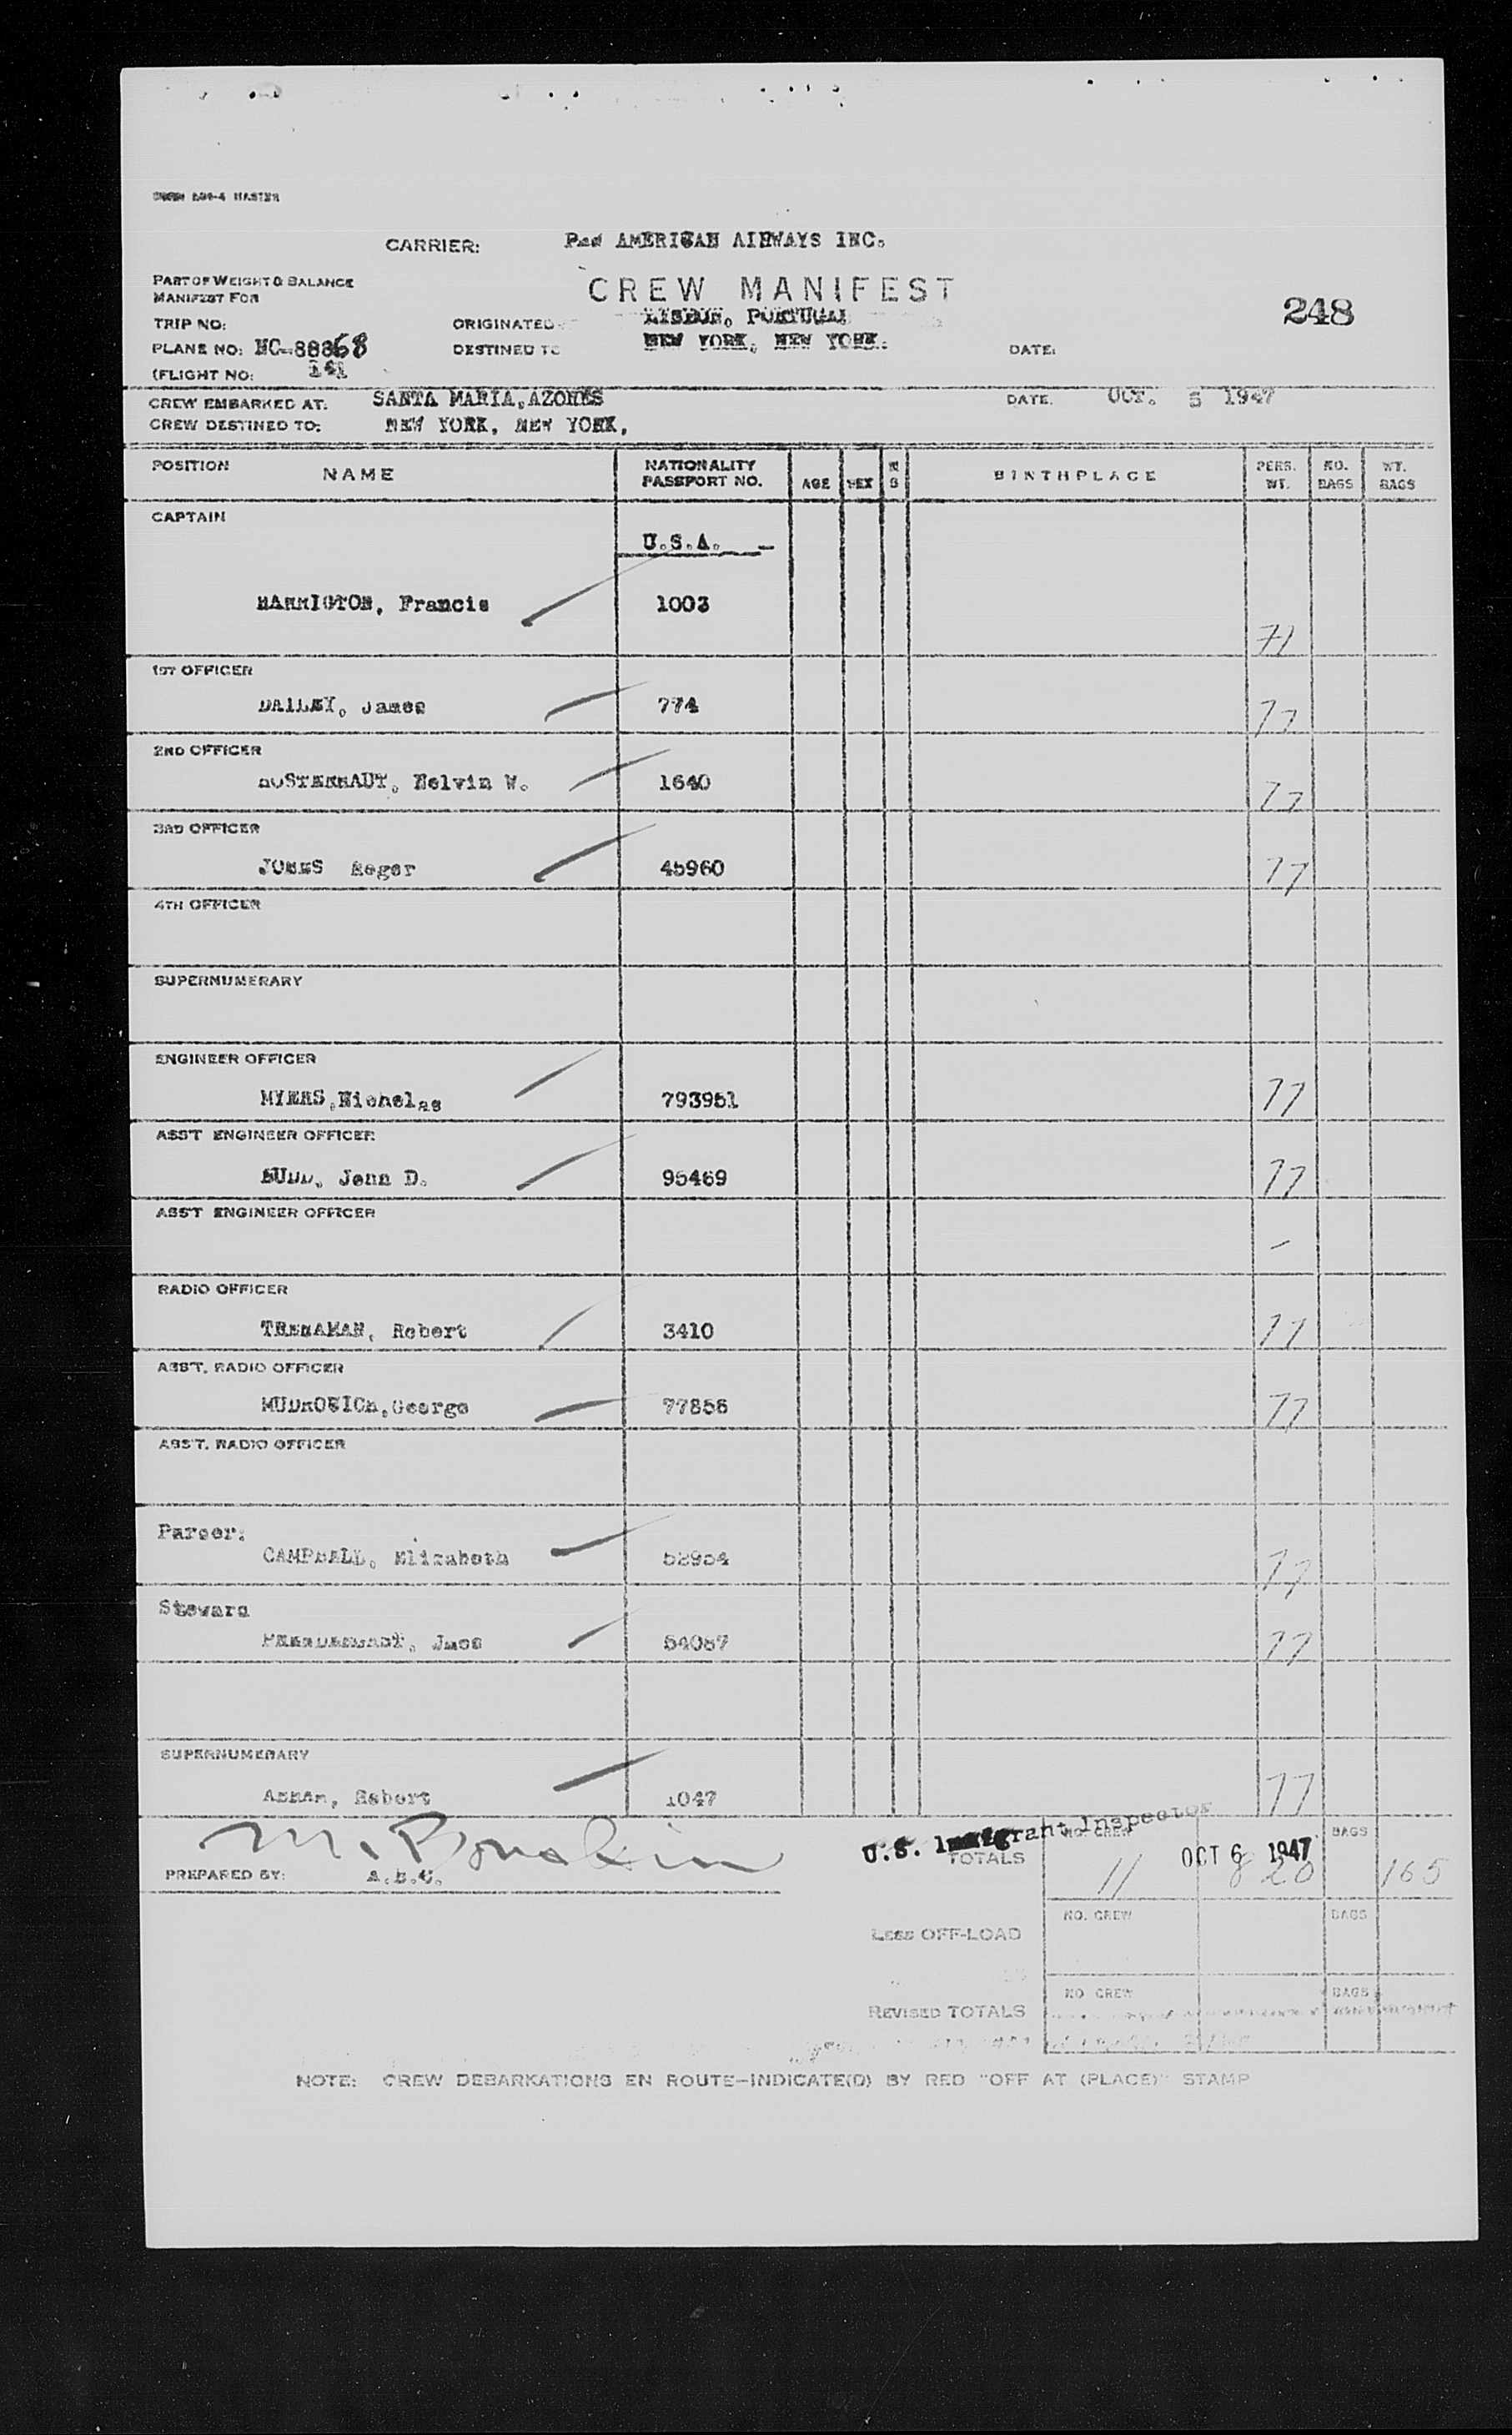 CARRIER: Pan AMERICAN AIRWAYS INC.
PART OF WEIGHT & BALANCE
MANIFEST FOR
CREW MANIFEST
248
TRIP NO: ORIGINATED LISBON, PORTUGAL
PLANE NO: NC-88868 DESTINED TO NEW YORK, NEW YORK. DATE:
(FLIGHT NO: 141
CREW EMBARKED AT: SANTA MARIA, AZORES DATE. OCT. 5 1947
CREW DESTINED TO: NEW YORK, NEW YORK,
POSITION NAME NATIONALITY PASSPORT NO. AGE SEX BIRTHPLACE PERS. WT. NO. BAGS WT. BAGS
CAPTAIN
U.S.A.
Francis 1003 77
1ST OFFICER
DAILEY, James 774 77
2ND OFFICER
W. 1640 77
3RD OFFICER
JONES Roger 45960 77
4TH OFFICER
SUPERNUMERARY
ENGINEER OFFICER
MYERS, Nicholas 793951 77
ASS'T ENGINEER OFFICER
BUDD, John D. 95469 77
ASS'T ENGINEER OFFICER
-
RADIO OFFICER
TRENAMAN, Robert 3410 77
ASS'T. RADIO OFFICER
George 77856 77
ASS'T. RADIO OFFICER
Purser:
CAMPBALL, Elizabeth 52954 77
Steward
54087 77
SUPERNUMERARY
Robert 1047 77
U.S. Immigrant Inspector
NO. CREW BAGS
PREPARED BY: TOTALS 11 OCT 6 1947 820 165
NO. CREW BAGS
LESS OFF-LOAD
NO CREW BAGS
REVISED TOTALS
NOTE: CREW DEBARKATIONS EN ROUTE-INDICATE(D) BY RED "OFF AT (PLACE)" STAMP